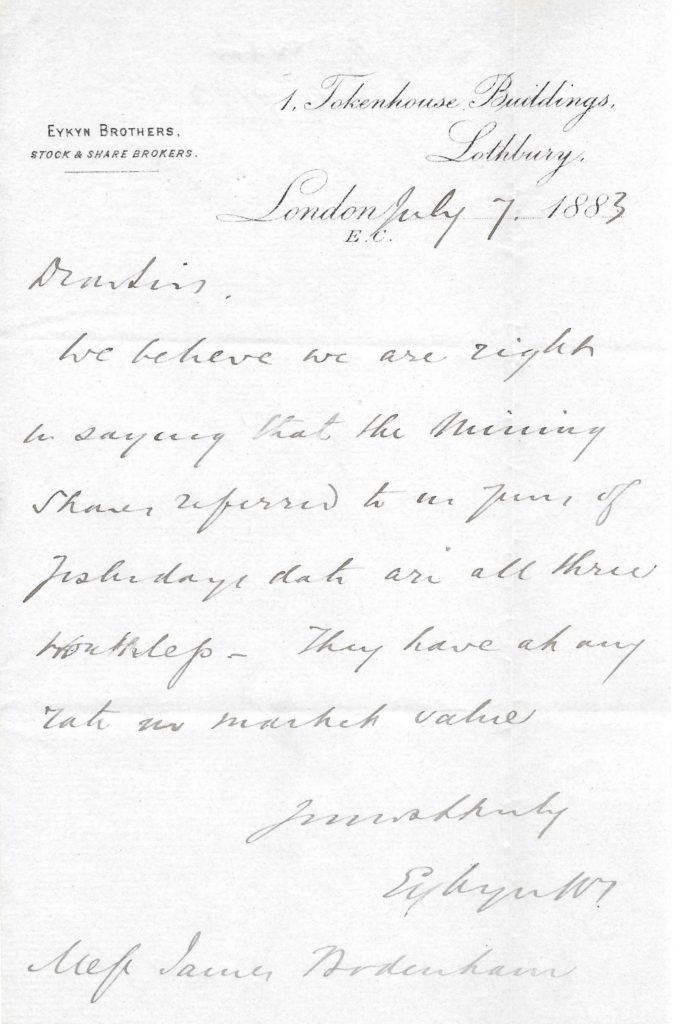 1, Tokenhouse Buildings,
EYKYN BROTHERS,
Lothbury,
STOCK & SHARE BROKERS.
London July 7. 1883
E.C.
Dear Sirs,
We believe we are right
in saying that the Mining
Shares referred to in yours of
yesterdays date are all three
worthless – They have at any
rate no market value
Yours truly
Eykyn Bros
Mess James Bodenham